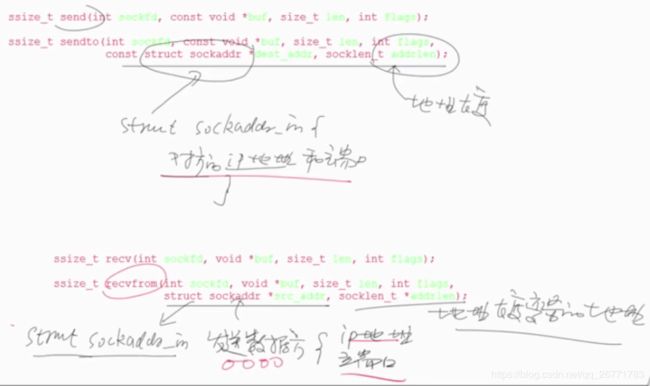 ssize_t send(int sockfd, const void *buf, size_t len, int flags);
ssize_t sendto(int sockfd, const void *buf, size_t len, int flags,
const struct sockaddr *dest_addr, socklen_t addrlen);
地址长度
struct sockaddr_in {
对方的ip地址和端口
}
ssize_t recv(int sockfd, void *buf, size_t len, int flags);
ssize_t recvfrom(int sockfd, void *buf, size_t len, int flags,
struct sockaddr *src_addr, socklen_t *addrlen);
地址长度变量的地址
struct sockaddr_in 发送数据方 { ip地址
端口
https://blog.csdn.net/qq_26771783